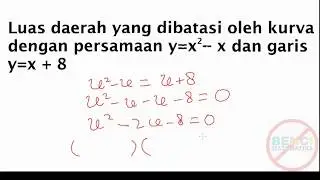 Luas daerah yang dibatasi oleh kurva
dengan persamaan y=x²-- x dan garis
y=x + 8
x²-x = x+8
x²-x-x-8=0
x²-2x-8=0
(    )(
BENCI
MATEMATIKA